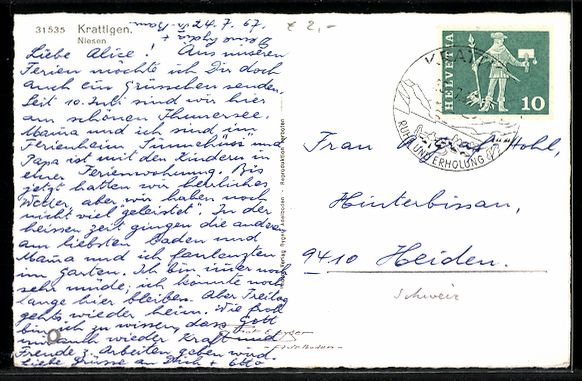 31535 Krattigen.
Niesen
24.7.67.
€ 2,-
Liebe Alice! Aus unseren
Ferien möchte ich Dir doch
auch ein Grüsschen senden.
Seit 10. Juli sind wir hier
am schönen Thunersee.
Mama und ich sind im
Ferienheim und
Papa ist mit den Kindern in
einer Ferienwohnung. Bis
jetzt hatten wir herrliches
Wetter, aber wir haben noch
nicht viel geleistet. In der
heissen Zeit gingen die anderen
am liebsten baden und
Mama und ich faulenzten
im Garten. Ich bin immer noch
sehr müde, ich könnte noch
lange hier bleiben. Aber Freitag
gehts wieder heim. Wie froh
bin ich zu wissen, dass Gott
mir auch wieder Kraft und
Freude z. Arbeiten geben wird.
Liebe Grüsse an Dich + Otto
HELVETIA
10
RUHE UND ERHOLUNG
Frau
Hinterbissau,
9410 Heiden.
Schweiz